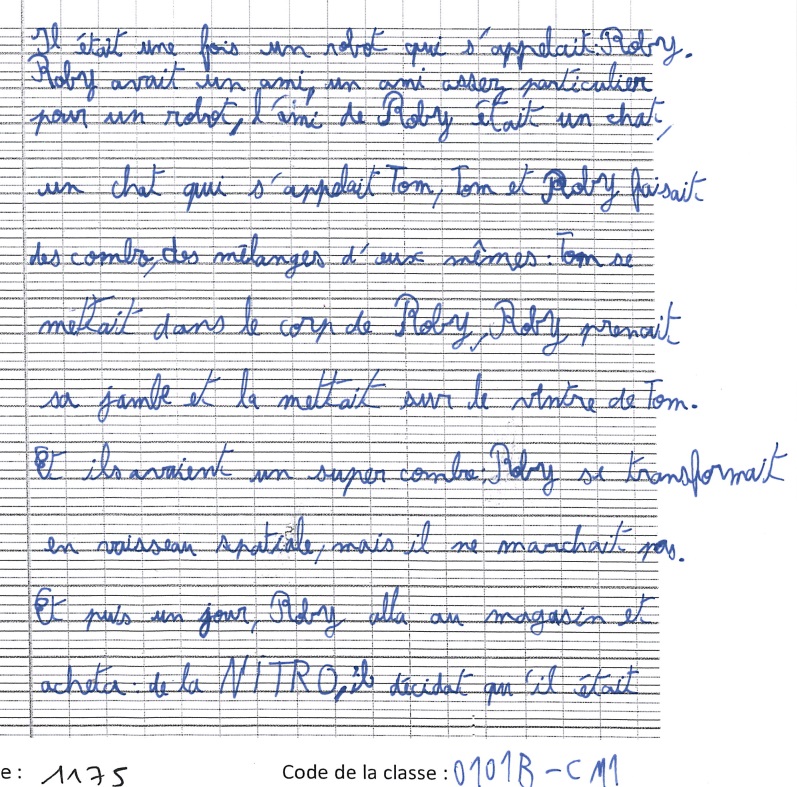 Il était une fois un robot qui s'appelait : Roby.
Roby avait un ami, un ami assez particulier
pour un robot, l'ami de Roby était un chat,
un chat qui s'appelait Tom, Tom et Roby faisait
des combo, des mélanges d'eux mêmes : Tom se
mettait dans le corp de Roby, Roby prenait
sa jambe et la mettait sur le ventre de Tom.
Et ils avaient un super combo : Roby se transformait
en vaisseau spatiale, mais il ne marchait pas.
Et puis un jour, Roby alla au magasin et
acheta de la NITRO, il décidat qu'il était
e : 1175 Code de la classe : 0101B-CM1